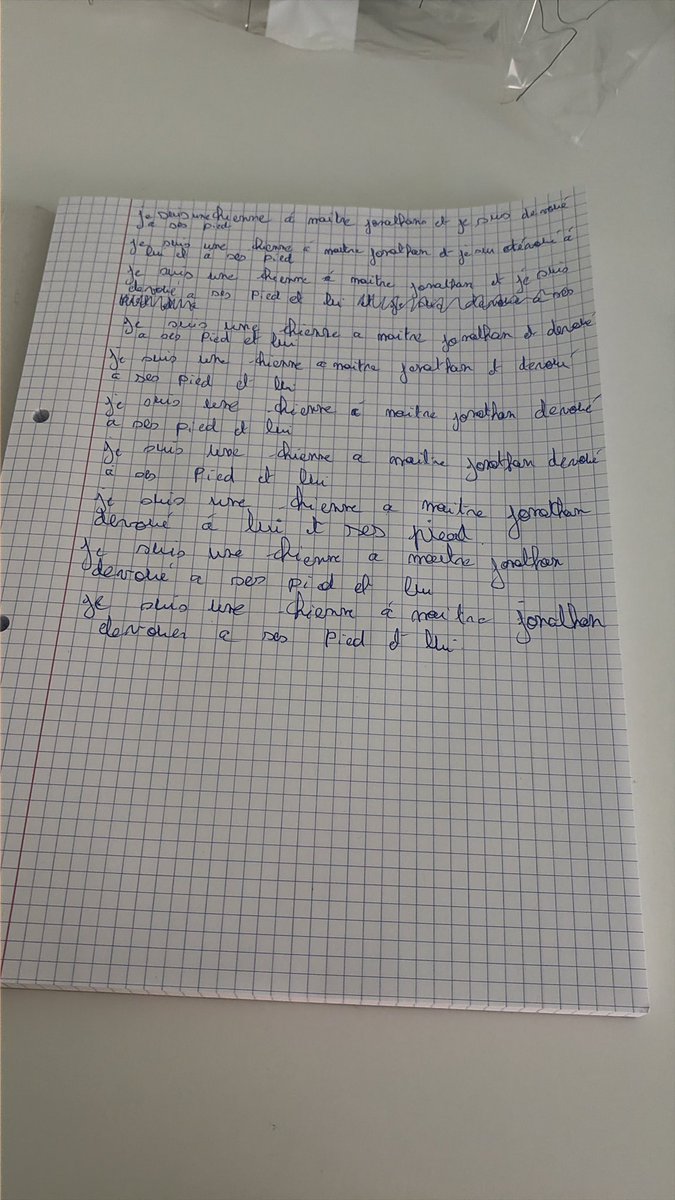 je suis une chienne à maitre jonathann et je suis devoué
à ses pied
je suis une chienne a maitre jonathan et je sui dévoué à
lui et a ses pied
je suis une chienne à maitre jonathan et je suis
devoué a ses pied et lui
je suis une chienne a maitre jonathan et devoué
a ses pied et lui
je suis une chienne a maitre jonathan et devoué
a ses pied et lui
je suis une chienne à maitre jonathan devoué
a ses pied et lui
je suis une chienne a maitre jonathan devoué
à ses pied et lui
je suis une chienne a maitre jonathan
devoué à lui et ses pied.
je suis une chienne a maitre jonathan
devoué a ses pied et lui
je suis une chienne à maitre jonathan
devouer a ses pied et lui